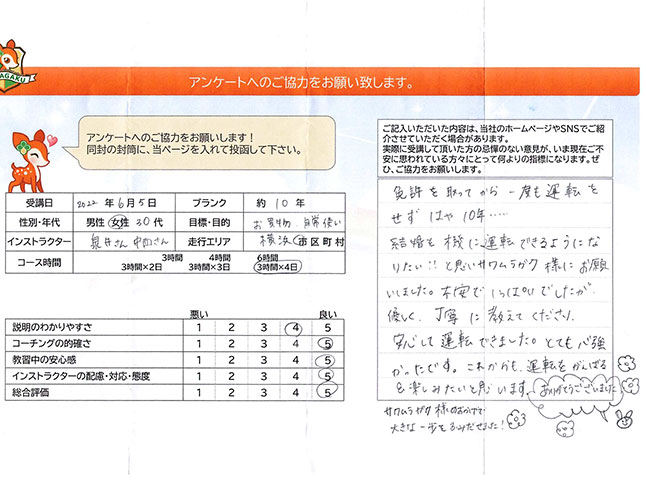 AGAKU
アンケートへのご協力をお願い致します。
アンケートへのご協力をお願いします!
同封の封筒に、当ページを入れて投函して下さい。
受講日 2022年6月5日 ブランク 約10年
性別・年代 男性 女性 30代 目標・目的 お買物、日常使い
インストラクター 泉井さん 中田さん 走行エリア 横浜 市区町村
コース時間 3時間 4時間 6時間
3時間×2日 3時間×3日 3時間×4日
悪い 良い
説明のわかりやすさ 1 2 3 4 5
コーチングの的確さ 1 2 3 4 5
教習中の安心感 1 2 3 4 5
インストラクターの配慮・対応・態度 1 2 3 4 5
総合評価 1 2 3 4 5
ご記入いただいた内容は、当社のホームページやSNSでご紹
介させていただく場合があります。
実際に受講して頂いた方の忌憚のない意見が、いま現在ご不
安に思われている方々にとって何よりの指標になります。ぜ
ひ、ご協力をお願いします。
免許を取ってから一度も運転を
せずはや10年……
結婚を機に運転できるようにな
りたい!!と思いサワムラガク様にお願
いしました。不安でいっぱいでしたが
優しく、丁寧に教えてくださり、
安心して運転できました。とても心強
かったです。これからも、運転をがんばる
&楽しみたいと思います。ありがとうございました
サワムラガク様のおかげで
大きな一歩をふみだせました!